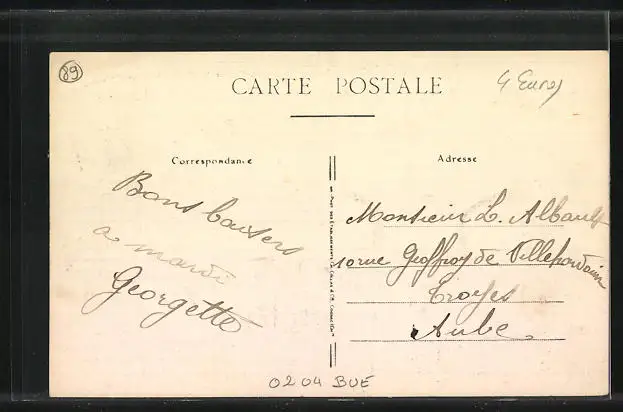 89
CARTE POSTALE
4 Euros
Correspondance
Adresse
Bons baisers
a mardi
Georgette
Monsieur L. Albault
10 rue Geoffroy de Villehardouin
Troyes
Aube
0204 BUE